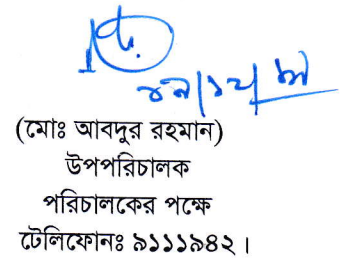 (মোঃ আবদুর রহমান)
উপপরিচালক
পরিচালকের পক্ষে
টেলিফোনঃ ৯১১১৯৪২।